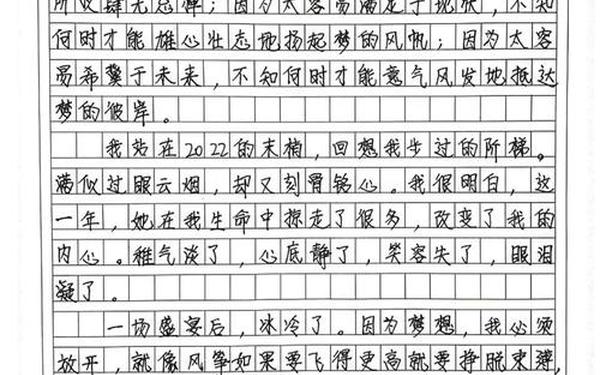 所以肆无忌惮；因为太容易满足于现状，不知
何时才能雄心壮志地扬起梦的风帆；因为太容
易希冀于未来，不知何时才能意气风发地抵达
梦的彼岸。
我站在2022的末梢，回想我步过的阶梯。
满似过眼云烟，却又刻骨铭心。我很明白，这
一年，她在我生命中掠走了很多，改变了我的
内心。稚气淡了，心底静了，笑容失了，眼泪
凝了。
一场盛宴后，冰冷了。因为梦想，我必须
放开，就像风筝如果要飞得更高就要挣脱束缚，